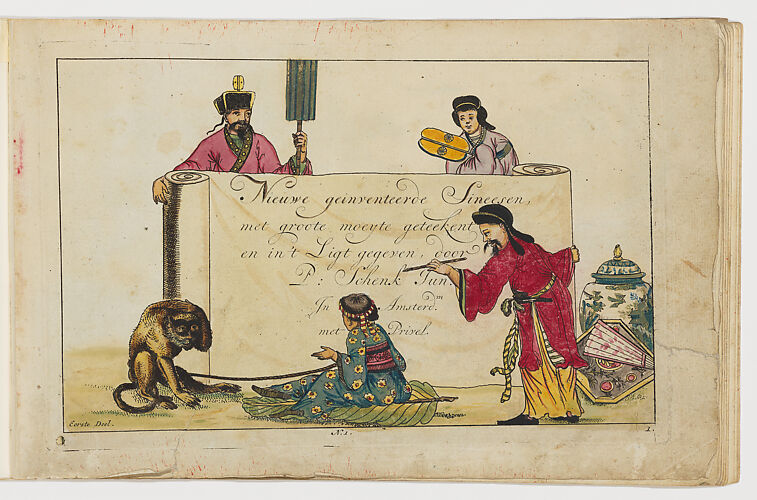 Nieuwe geinventeerde Sineesen,
met groote moeyte geteekent
en in't Ligt gegeven, door
P: Schenk Jun.
In Amsterd.m
met Privel.
Eerste Deel.
No 1.
1.